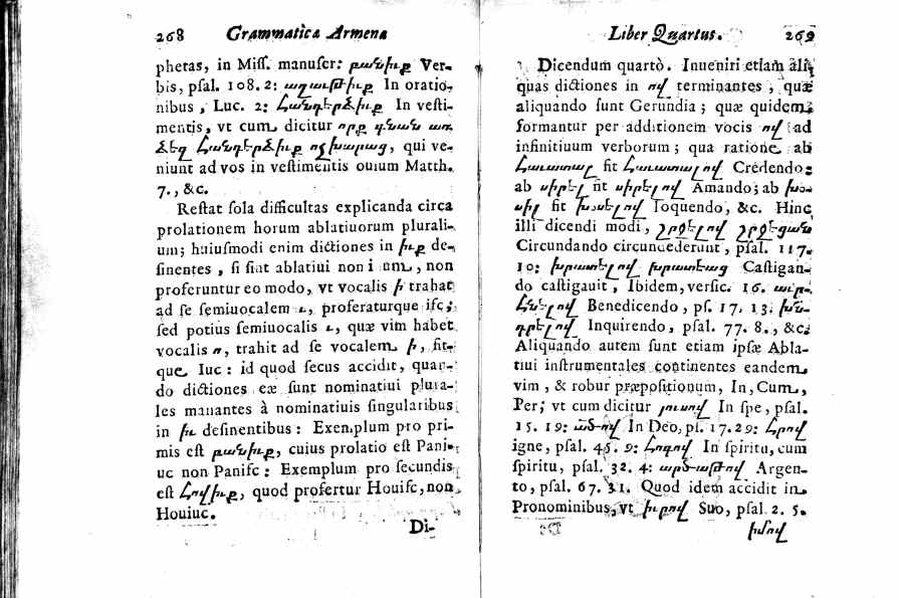 268 Grammatica Armena
phetas, in Miss. manuscr: բանիւք Ver-
bis, psal. 108. 2: աղաւթիւք In oratio-
nibus, Luc. 2: Հանդերձիւք In vesti-
mentis, vt cum dicitur որք գնան առ
ձեզ Հանդերձիւք ոչխարաց, qui ve-
niunt ad vos in vestimentis ouium Matth.
7., &c.
Restat sola difficultas explicanda circa
prolationem horum ablatiuorum plurali-
um; huiusmodi enim dictiones in իւք de-
sinentes, si sint ablatiui non i um, non
proferuntur eo modo, vt vocalis ի trahat
ad se semiuocalem ւ, proferaturque isc;
sed potius semiuocalis ւ, quæ vim habet
vocalis ո, trahit ad se vocalem ի, fit-
que Iuc: id quod secus accidit, quan-
do dictiones eæ sunt nominatiui plura-
les manantes à nominatiuis singularibus
in իւ desinentibus: Exemplum pro pri-
mis est բանիւք, cuius prolatio est Pani-
uc non Panisc: Exemplum pro secundis
est Հովիւք, quod profertur Houisc, non
Houiuc.
Di-
Liber Quartus. 269
Dicendum quartò. Inueniri etiam ali-
quas dictiones in ով terminantes, quæ
aliquando sunt Gerundia; quæ quidem
formantur per additionem vocis ով ad
infinitiuum verborum; qua ratione ab
Հաւատալ fit Հաւատալով Credendo:
ab սիրել fit սիրելով Amando; ab խօ-
սիլ fit խօսելով Loquendo, &c. Hinc
illi dicendi modi, շրջելով շրջեցան
Circundando circundederunt, psal. 117.
10: խրատելով խրատեաց Castigan-
do castigauit, Ibidem, versic. 16. աւր-
Հնելով Benedicendo, ps. 17. 13. խն-
դրելով Inquirendo, psal. 77. 8., &c.
Aliquando autem sunt etiam ipsæ Abla-
tiui instrumentales continentes eandem
vim, & robur præpositionum, In, Cum,
Per; vt cum dicitur յուսով In spe, psal.
15. 19: ածով In Deo, ps. 17. 29: Հրով
igne, psal. 45. 9: Հոգով In spiritu, cum
spiritu, psal. 32. 4: արծաթով Argen-
to, psal. 67. 31. Quod idem accidit in
Pronominibus, vt իւրով Suo, psal. 2. 5.
իմով